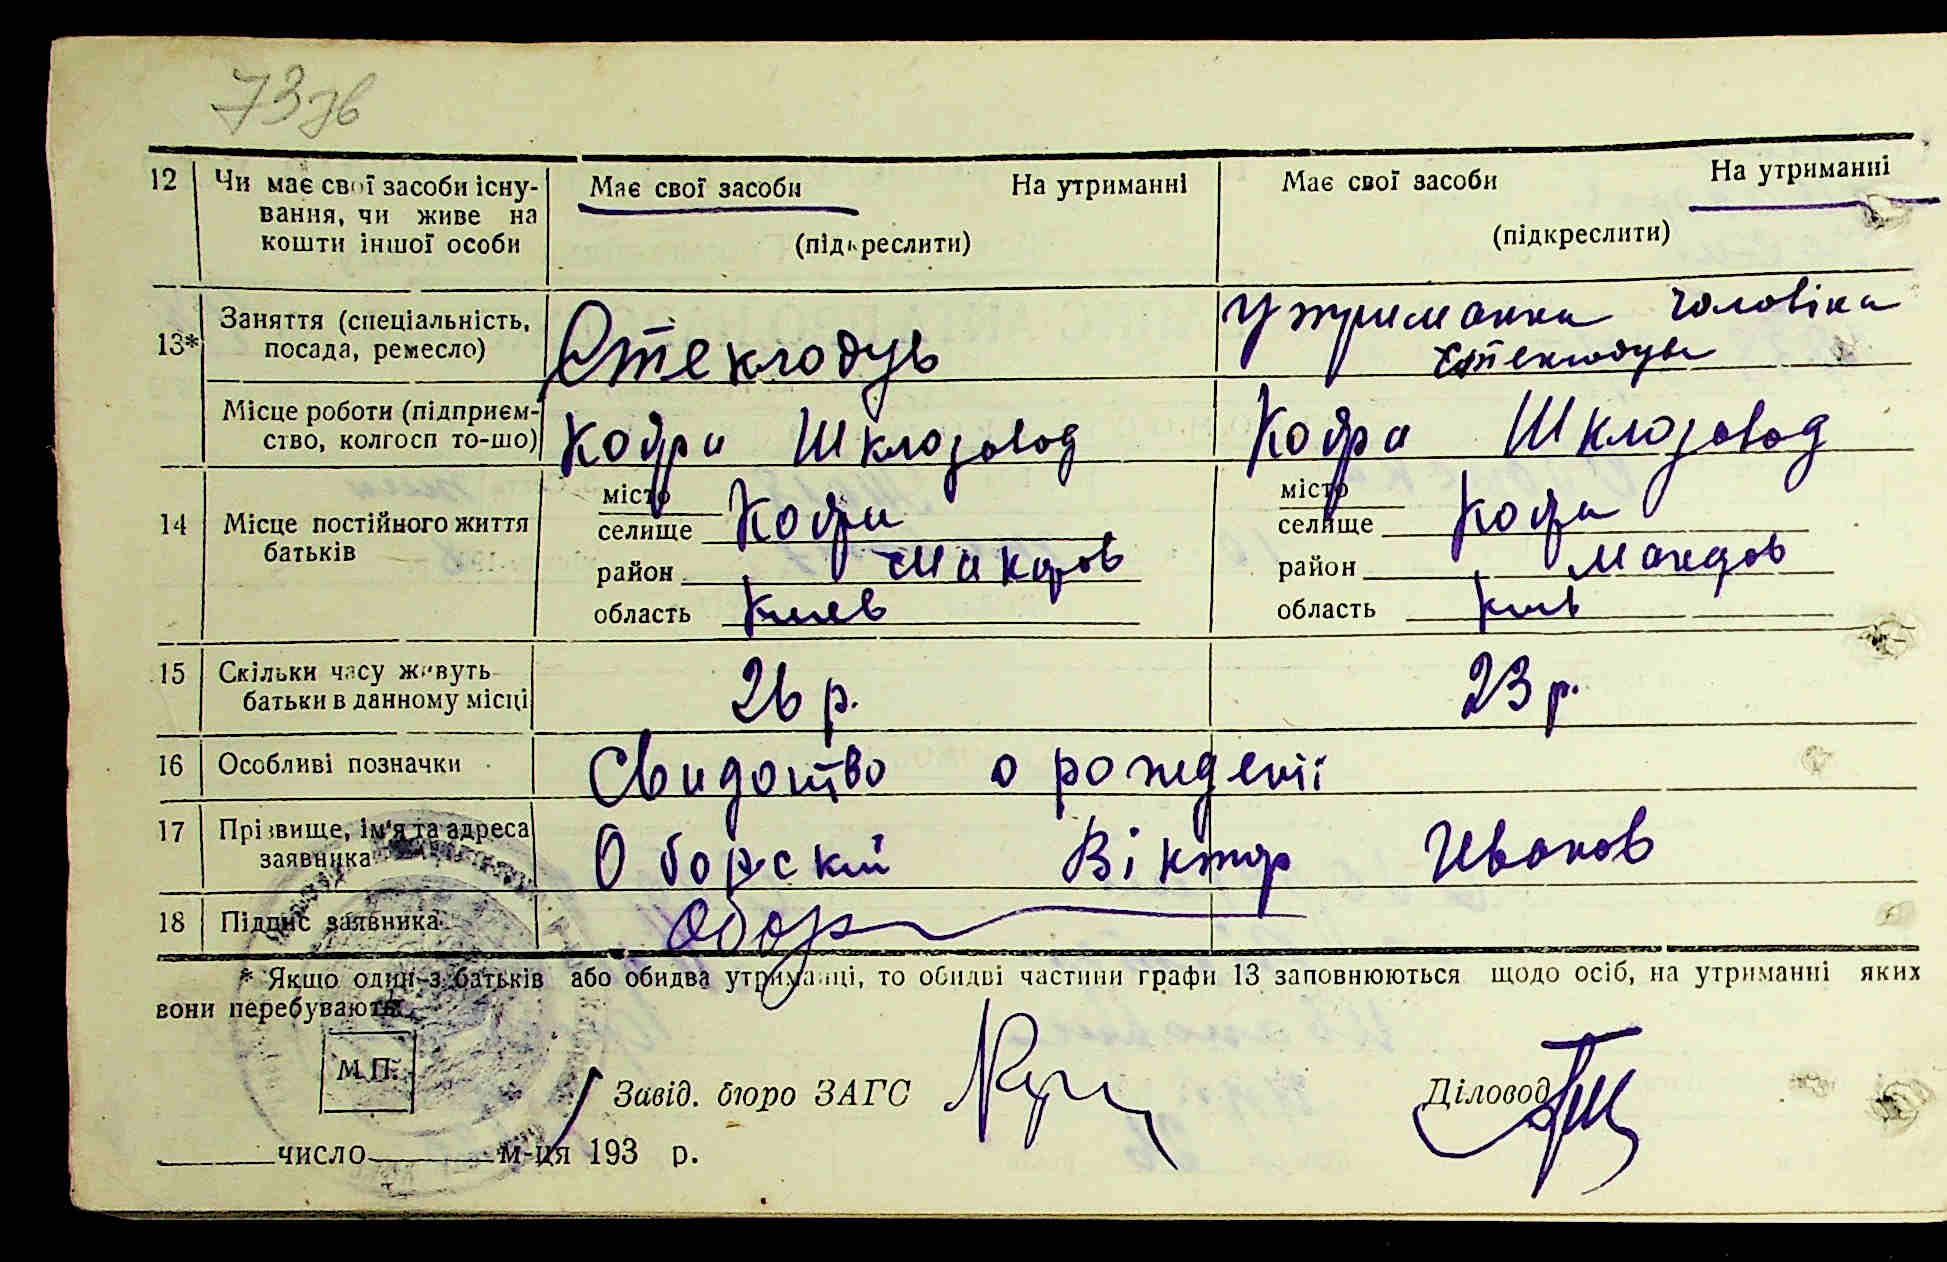 73 зв
12 Чи має свої засоби існу- Має свої засоби На утриманні Має свої засоби На утриманні
вання, чи живе на
кошти іншої особи (підкреслити) (підкреслити)
13* Заняття (спеціальність, Стеклодув Утриманка чоловіка
посада, ремесло) стеклодува
Місце роботи (підприєм- Кодри Шклозавод Кодра Шклозавод
ство, колгосп то-що)
14 Місце постійного життя місто місто
батьків селище Кодри селище Кодра
район Макаров район Макаров
область Киев область Киів
15 Скільки часу живуть 26 р. 23 р.
батьки в данному місці
16 Особливі позначки Свидоцтво о рожденіі
17 Прізвище, ім'я та адреса Оборскій Віктор Иванов
заявника
18 Підпис заявника Обор
* Якщо один з батьків або обидва утриманці, то обидві частини графи 13 заповнюються щодо осіб, на утриманні яких
вони перебувають.
М.П.
Завід. бюро ЗАГС Діловод
число м-ця 193 р.